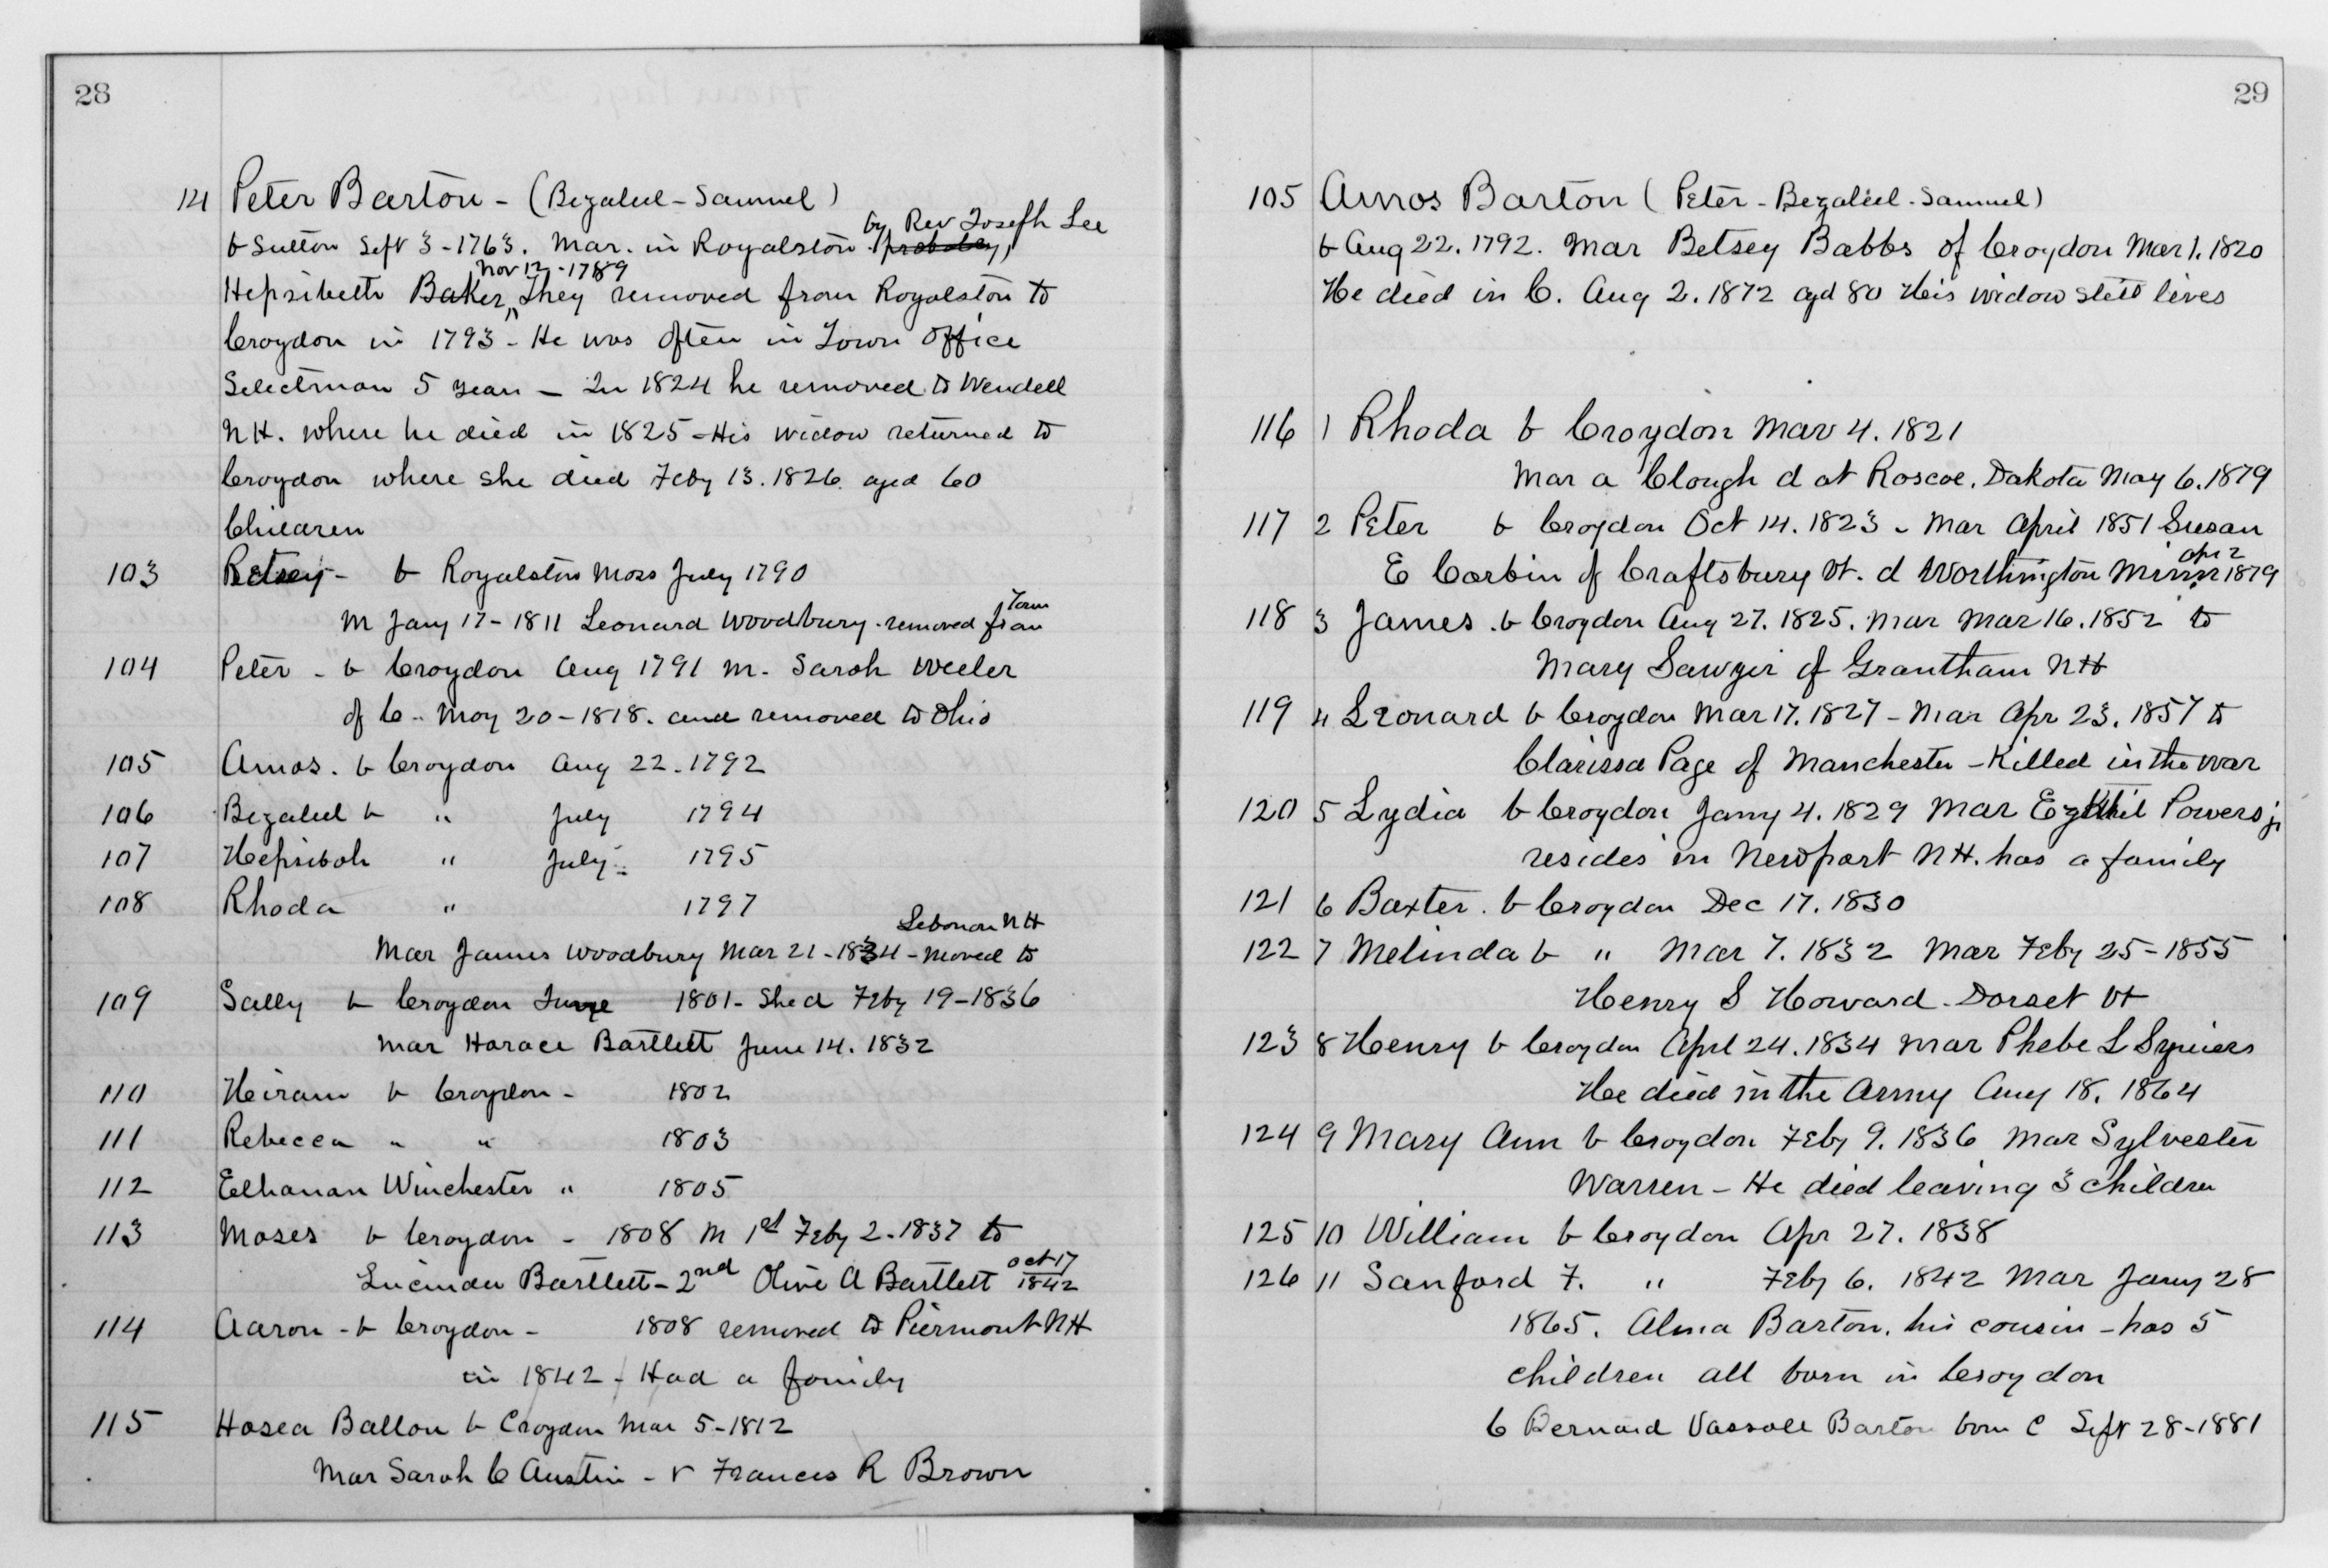 28
14 Peter Barton - (Bezaleel - Samuel)
by Rev Joseph Lee
b Sutton Sept 3 - 1763. Mar. in Royalston probabey,
Nov 12 - 1789
Hepsibeth Baker, They removed from Royalston to
Croydon in 1793 - He was often in Town office
Selectman 5 years - In 1824 he removed to Wendell
N.H. where he died in 1825 - His widow returned to
Croydon where she died Feby 13. 1826. aged 60
Children
103 Betsey - b Royalston Mass July 1790
Town
m Jany 17 - 1811 Leonard Woodbury. removed from
104 Peter - b Croydon Aug 1791 m. Sarah Weeler
of C - May 20 - 1818. and removed to Ohio
105 Amos. b Croydon Aug 22. 1792
106 Bezaleel b " July 1794
107 Hepsibah " July 1795
108 Rhoda " 1797
Lebonon N H
Mar James Woodbury Mar 21 - 1834 - moved to
109 Sally b Croydon June 1801 - She d Feby 19 - 1836
Mar Horace Bartlett June 14. 1832
110 Heiram b Croydon - 1802
111 Rebecca " " 1803
112 Elhanan Winchester " 1805
113 Moses b Croydon - 1808 m 1st Feby 2. 1837 to
Oct 17
Lucinda Bartlett - 2nd Olive A Bartlett 1842
114 Aaron - b Croydon - 1808 removed to Piermont NH
in 1842 - Had a family
115 Hosea Ballou b Croydon Mar 5 - 1812
Mar Sarah C Austin - & Frances R Brown
29
105 Amos Barton (Peter - Bezaleel - Samuel)
b Aug 22. 1792. Mar Betsey Babbs of Croydon Mar 1. 1820
He died in C. Aug 2. 1872 agd 80 His widow still lives
116 1 Rhoda b Croydon Mar 4. 1821
Mar a Clough d at Roscoe. Dakota May 6. 1879
117 2 Peter b Croydon Oct 14. 1823 - Mar April 1851 Susan
Apr 2
E Corbin of Craftsbury Vt. d Worthington Minn 1879
118 3 James. b Croydon Aug 27. 1825. Mar Mar 16. 1852 to
Mary Sawyer of Grantham NH
119 4 Leonard b Croydon Mar 17. 1827 - Mar Apr 23. 1857 to
Clarissa Page of Manchester - Killed in the war
120 5 Lydia b Croydon Jany 4. 1829 Mar Ezekiel Powers jr
resides in Newport N H. has a family
121 6 Baxter. b Croydon Dec 17. 1830
122 7 Melinda b " Mar 7. 1832 Mar Feby 25 - 1855
Henry S Howard - Dorset Vt
123 8 Henry b Croydon Aprl 24. 1834 Mar Phebe L
He died in the Army Aug 18. 1864
124 9 Mary Ann b Croydon Feby 9. 1836 Mar Sylvester
Warren - He died leaving 3 children
125 10 William b Croydon Apr 27. 1838
126 11 Sanford F. " Feby 6. 1842 Mar Jany 28
1865. Alma Barton. his cousin - has 5
children all born in Croydon
6 Bernard Vassale Barton born C Sept 28 - 1881